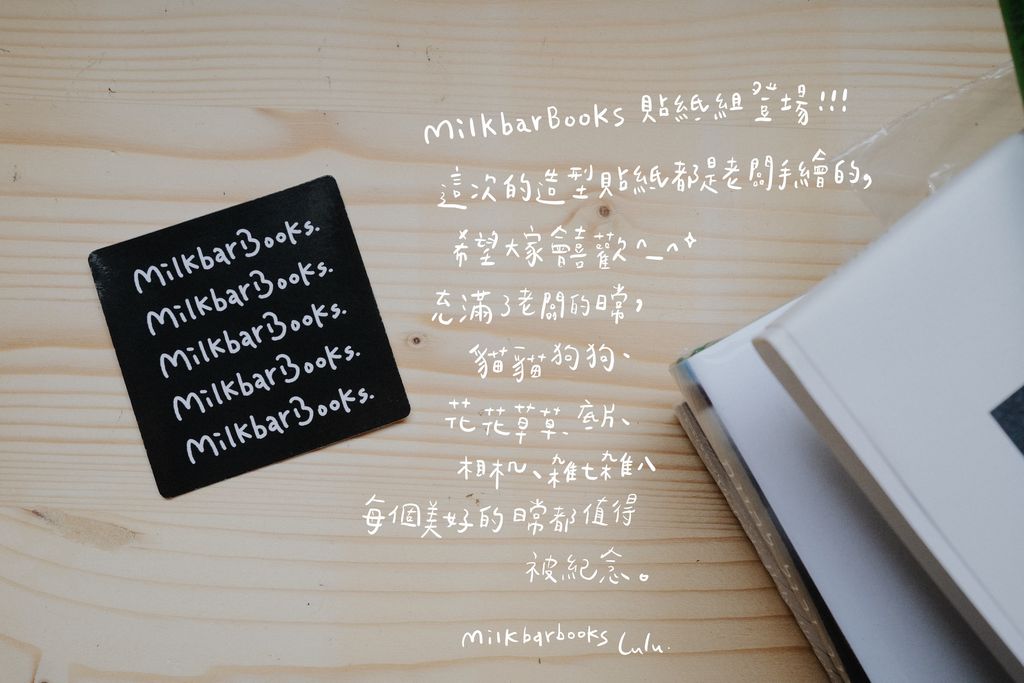 MilkbarBooks.
MilkbarBooks.
MilkbarBooks.
MilkbarBooks.
MilkbarBooks.
MilkbarBooks 貼紙組登場!!!
這次的造型貼紙都是老闆手繪的,
希望大家會喜歡^_^✧
充滿了老闆的日常,
貓貓狗狗、
花花草草、底片、
相机、雜七雜八
每個美好的日常都值得
被紀念。
milkbarbooks Lulu.